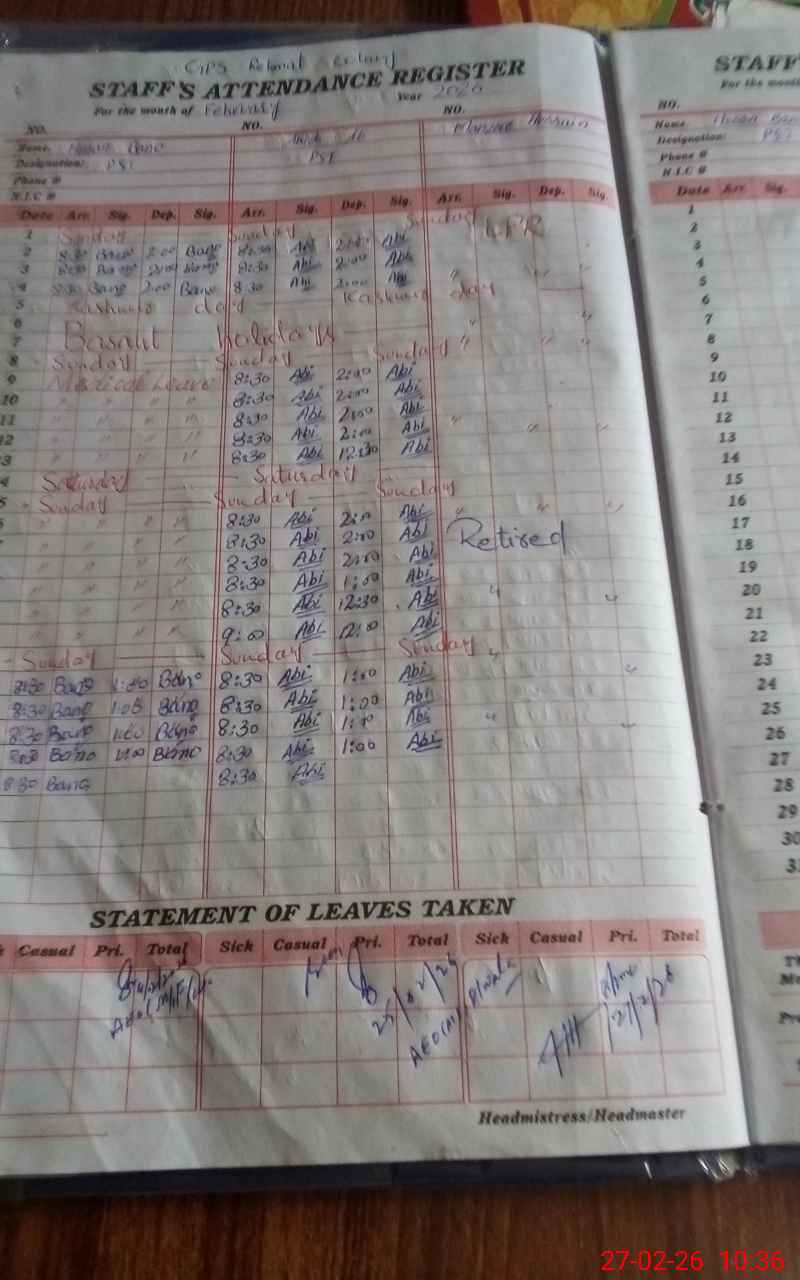 GPS
STAFF'S ATTENDANCE REGISTER
For the month of February Year 2026
NO. NO. NO.
Name. Bano Hussain
Designation: PST PST
Phone #
N.I.C #
Date Arr. Sig. Dep. Sig. Arr. Sig. Dep. Sig. Arr. Sig. Dep. Sig
1 Sunday Sunday Sunday LPR
2 8:30 Bano 2:00 Bano 8:30 Abi 2:00 Abi
3 8:30 Bano 2:00 Bano 8:30 Abi 2:00 Abi
4 8:30 Bano 2:00 Bano 8:30 Abi 2:00 Abi " " "
5 Kashmir day Kashmir day
6 " "
7 Basant holidays " " "
8 Sunday Sunday Sunday
9 Medical Leave 8:30 Abi 2:00 Abi
10 " " " " 8:30 Abi 2:00 Abi
11 " " " " 8:30 Abi 2:00 Abi " " "
12 " " " " 8:30 Abi 2:00 Abi
13 " " " " 8:30 Abi 12:30 Abi
4 Saturday Saturday
5 Sunday Sunday Sunday
" " " " 8:30 Abi 2:00 Abi " " "
" " " " 8:30 Abi 2:00 Abi Retired
" " " " 8:30 Abi 2:00 Abi
" " " " 8:30 Abi 1:00 Abi
" " " " 8:30 Abi 12:30 Abi " "
" " " " 9:00 Abi 12:00 Abi
Sunday Sunday Sunday "
8:30 Bano 1:00 Bano 8:30 Abi 1:00 Abi "
8:30 Bano 1:00 Bano 8:30 Abi 1:00 Abi
8:30 Bano 1:00 Bano 8:30 Abi 1:00 Abi " "
8:30 Bano 1:00 Bano 8:30 Abi 1:00 Abi
8:30 Bano 8:30 Abi
STATEMENT OF LEAVES TAKEN
Casual Pri. Total Sick Casual Pri. Total Sick Casual Pri. Total
25/02/26
AEO(M)
27/2/26
Headmistress/Headmaster
STAFF
For the month
NO.
Name.
Designation: PST
Phone #
N.I.C #
Date Arr. Sig.
1
2
3
4
5
6
7
8
9
10
11
12
13
14
15
16
17
18
19
20
21
22
23
24
25
26
27
28
29
30
27-02-26 10:36